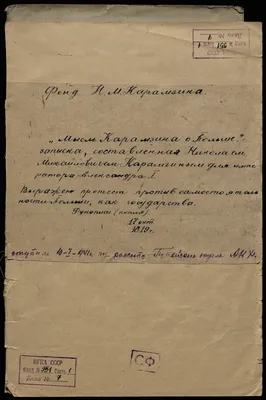 Фонд Н. М. Карамзина.
„Мысль Карамзина о Польше"
записка, составленная Николаем
Михайловичем Карамзиным для импе
ратора Александра I.
Выражен протест против самостоятель
ности Польши, как государства.
Рукопись (копия)
17 окт.
1819 г.
ЦГЛА СССР
Фонд № 951
№ 7
СФ